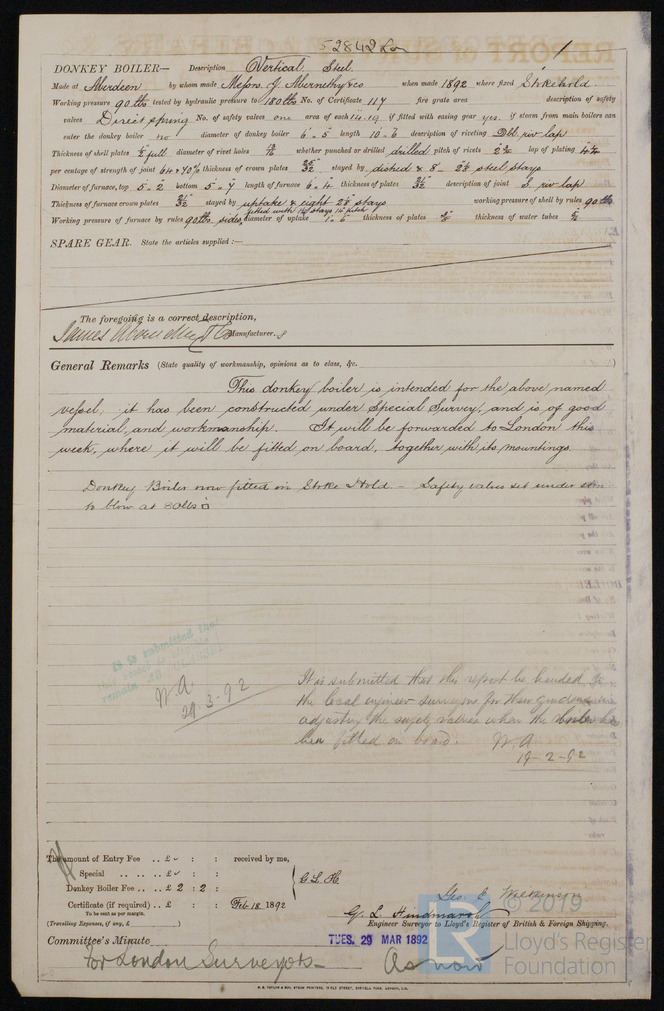 52842 Lon
1
DONKEY BOILER— Description Vertical Steel
Made at Aberdeen by whom made Messrs J Abernethy & Co when made 1892 where fixed Stokehold.
Working pressure 90 lbs tested by hydraulic pressure to 180 lbs No. of Certificate 117 fire grate area description of safety
valves Direct spring No. of safety valves one area of each 14.19 if fitted with easing gear yes. if steam from main boilers can
enter the donkey boiler no diameter of donkey boiler 6'.5" length 10'.6 description of riveting Dbl. riv lap
Thickness of shell plates ½ full diameter of rivet holes whether punched or drilled drilled pitch of rivets lap of plating
per centage of strength of joint thickness of crown plates stayed by dished & 8 - steel stays
Diameter of furnace, top 5.2 bottom 5.7 length of furnace 6.4 thickness of plates description of joint S. riv lap
Thickness of furnace crown plates stayed by uptake & eight stays working pressure of shell by rules 90 lbs
Working pressure of furnace by rules 90 lbs. sides fitted with stays pitch diameter of uptake 1.6 thickness of plates thickness of water tubes
SPARE GEAR. State the articles supplied :—
The foregoing is a correct description,
James Abernethy & Co Manufacturer.
General Remarks (State quality of workmanship, opinions as to class, &c.
This donkey boiler is intended for the above named
vessel, it has been constructed under Special Survey, and is of good
material, and workmanship. It will be forwarded to London this
week, where it will be fitted on board, together with its mountings.
Donkey Boiler now fitted in Stoke Hold. - Safety valves set under stm
to blow at 80 lbs □
It is submitted that
this vessel is eligible
remain AS CLASSED
W.A.
29.3.92
It is submitted that this report be handed to
the local engineer surveyors for their guidance in
adjusting the safety valves when the boiler has
been fitted on board. W.A.
19-2-92
The amount of Entry Fee .. £ : : received by me,
Special .. .. £ : :
Donkey Boiler Fee .. .. £ 2 : 2 : G L H
Certificate (if required) .. £ : : Feb 18 1892
To be sent as per margin.
(Travelling Expenses, if any, £ )
Geo. C. Wilkinson
G. L. Hindmarsh
Engineer Surveyor to Lloyd's Register of British & Foreign Shipping.
Committee's Minute TUES. 29 MAR 1892
For London Surveyors As now
© 2019
Lloyd's Register
Foundation